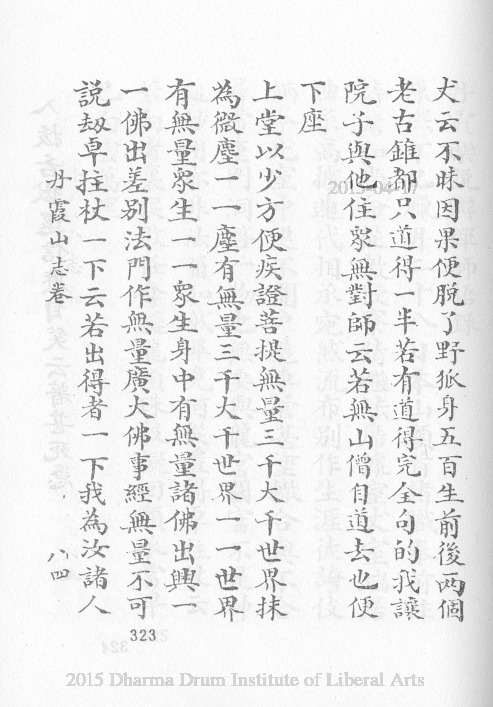 丈云不昧因果便脫了野狐身五百生前後兩個
老古錐都只道得一半若有道得完全句的我讓
院子與他住衆無對師云若無山僧自道去也便
下座
上堂以少方便疾證菩提無量三千大千世界抹
為微塵一一塵有無量三千大千世界一一世界
有無量衆生一一衆生身中有無量諸佛出興一
一佛出差別法門作無量廣大佛事經無量不可
說劫卓拄杖一下云若出得者一下我為汝諸人
丹霞山志卷
八四
323
2015-04-07
2015 Dharma Drum Institute of Liberal Arts